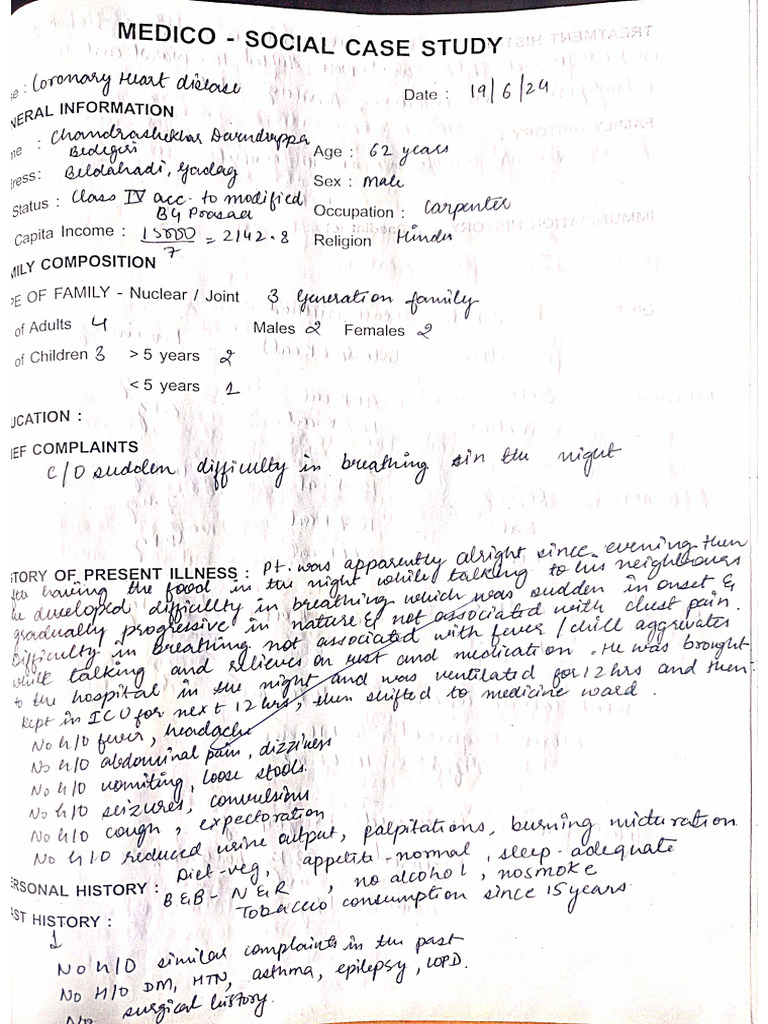 MEDICO - SOCIAL CASE STUDY
se : Coronary Heart disease
Date : 19/6/24
NERAL INFORMATION
me : Chandrashekhar Devendrappa
Bedigeri
Age : 62 years
ress: Beldahadi, Gadag
Sex : Male
Status : Class IV acc. to modified
BG Prasad
Occupation : Carpenter
Capita Income : 15000/7 = 2142.8
Religion Hindu
MILY COMPOSITION
PE OF FAMILY - Nuclear / Joint 3 Generation family
of Adults 4 Males 2 Females 2
of Children 3 > 5 years 2
< 5 years 1
UCATION :
IEF COMPLAINTS
C/O sudden difficulty in breathing in the night
TORY OF PRESENT ILLNESS : Pt. was apparently alright since evening then
after having the food in the night while talking to his neighbours
he developed difficulty in breathing which was sudden in onset &
gradually progressive in nature & not associated with chest pain.
Difficulty in breathing not associated with fever / chill aggrevates
while talking and relieves on rest and medication. He was brought
to the hospital in the night and was ventilated for 12 hrs and then
kept in ICU for next 12 hrs, then shifted to medicine ward.
No h/o fever, headache
No h/o abdominal pain, dizziness
No h/o vomiting, loose stools.
No h/o seizures, convulsions
No h/o cough, expectoration
No h/o reduced urine output, palpitations, burning micturation
Diet-veg, appetite-normal, sleep-adequate
ERSONAL HISTORY : B&B - N&R, no alcohol, no smoke
Tobacco consumption since 15 years
ST HISTORY :
No h/o similar complaints in the past
No H/o DM, HTN, asthma, epilepsy,
No surgical history.